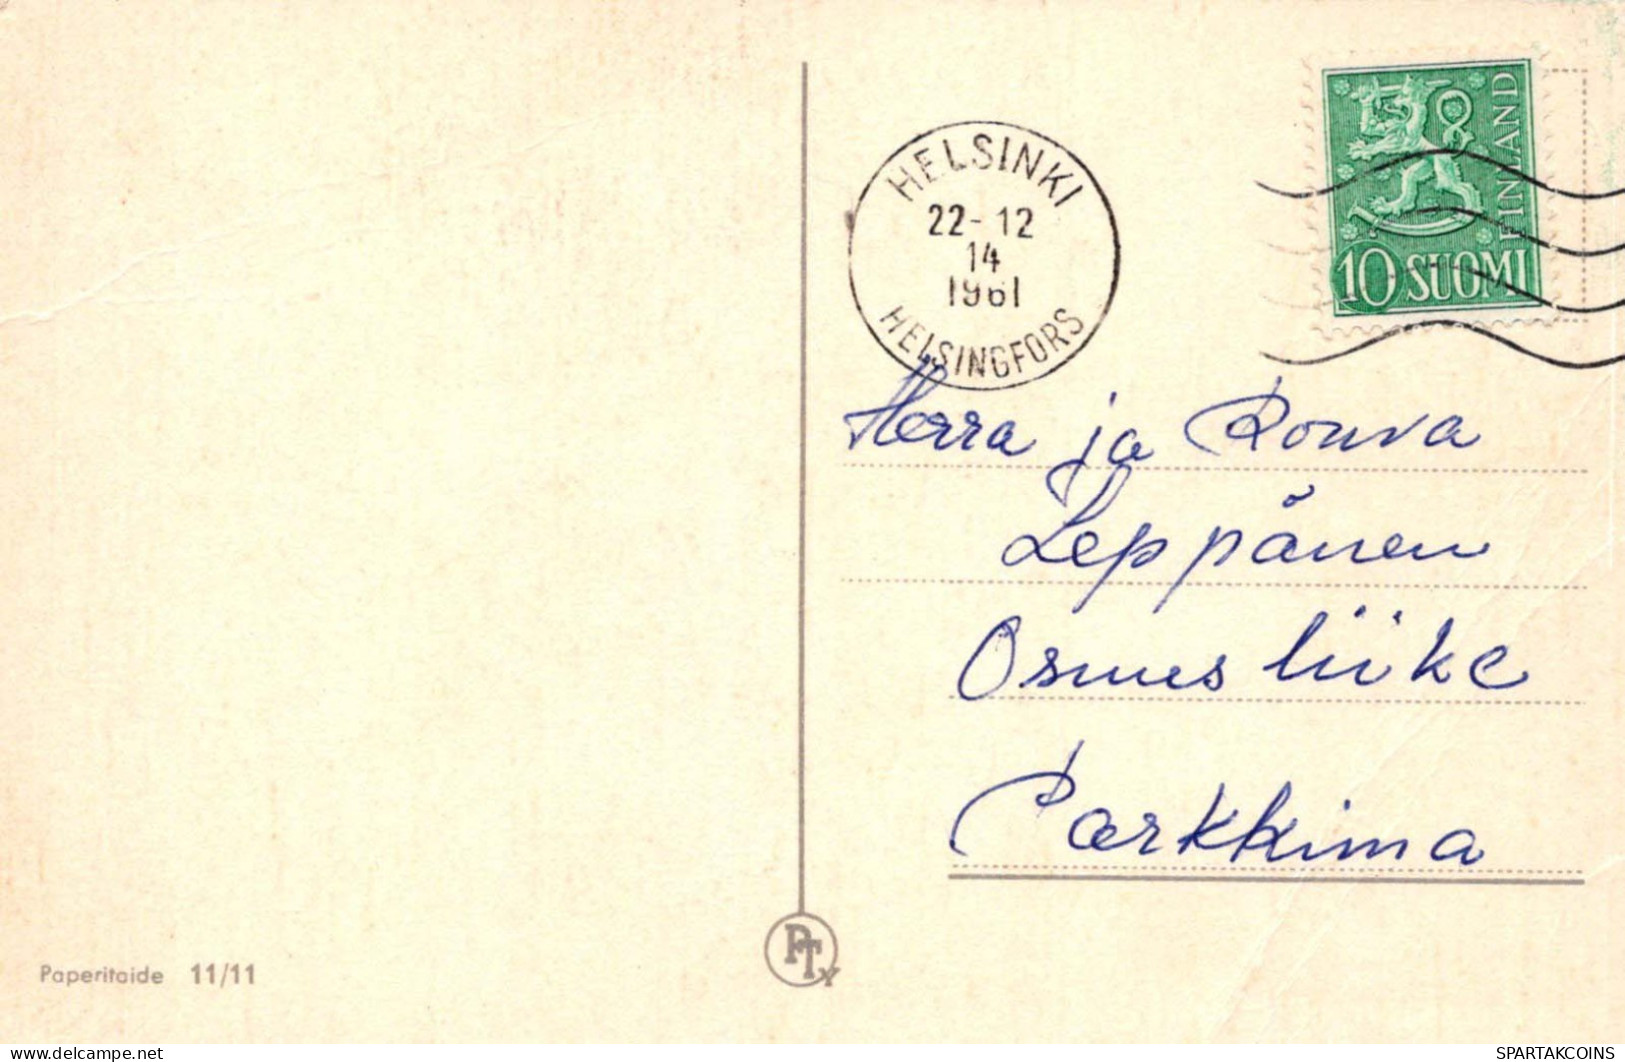 HELSINKI
22-12
14
1961
HELSINGFORS
FINLAND
10 SUOMI
Herra ja Rouva
Leppänen
Osuusliike
Parkkima
Paperitaide 11/11
PTY
delcampe.net
SPARTAKCOINS